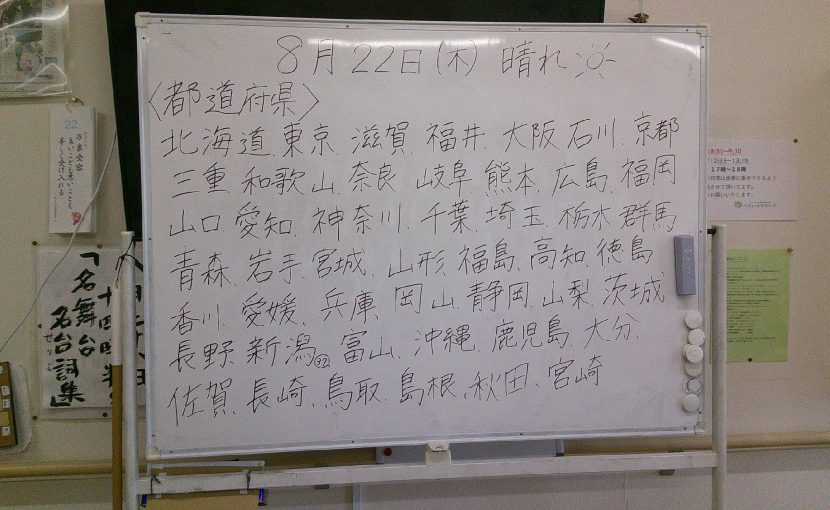 8月22日(木) 晴れ
〈都道府県〉
北海道、東京、滋賀、福井、大阪、石川、京都
三重、和歌山、奈良、岐阜、熊本、広島、福岡
山口、愛知、神奈川、千葉、埼玉、栃木、群馬
青森、岩手、宮城、山形、福島、高知、徳島
香川、愛媛、兵庫、岡山、静岡、山梨、茨城
長野、新潟、㉜富山、沖縄、鹿児島、大分、
佐賀、長崎、鳥取、島根、秋田、宮崎
22
美しく受け入れる
「名舞台
名台詞集」
17時~18時